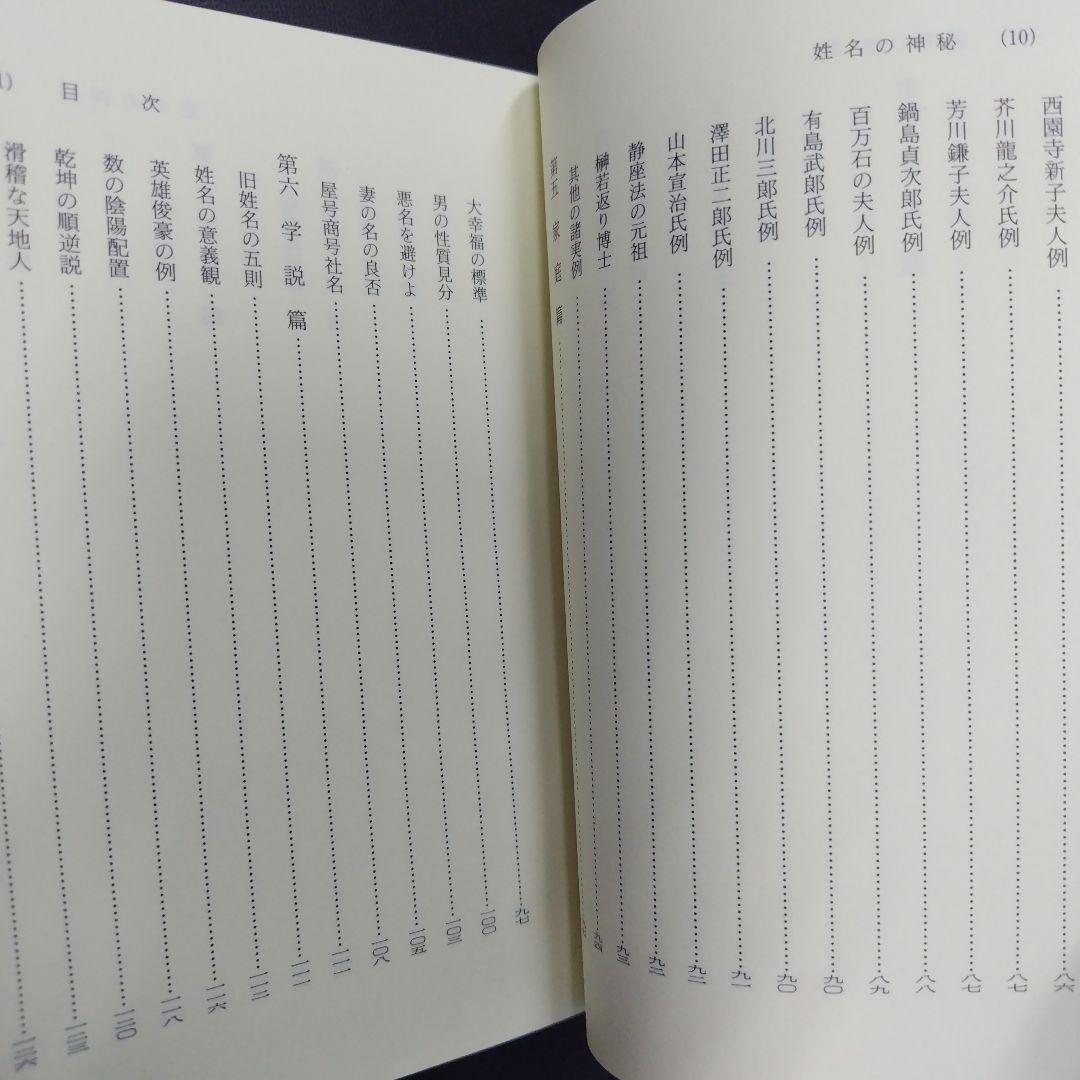 姓名の神秘 (10)
西園寺新子夫人例……八六
芥川龍之介氏例……八七
芳川鎌子夫人例……八七
鍋島貞次郎氏例……八八
百万石の夫人例……八九
有島武郎氏例……九〇
北川三郎氏例……九〇
澤田正二郎氏例……九一
山本宣治氏例……九二
静座法の元祖……九二
榊若返り博士……九三
其他の諸実例……九四
第五 家庭篇……
目次
大幸福の標準……九七
男の性質見分……一〇〇
悪名を避けよ……一〇三
妻の名の良否……一〇五
屋号商号社名……一〇八
第六 学説篇……一一一
旧姓名の五則……一一一
姓名の意義観……一一三
英雄俊豪の例……一一六
数の陰陽配置……一一八
乾坤の順逆説……一二〇
滑稽な天地人……一二三
一二六